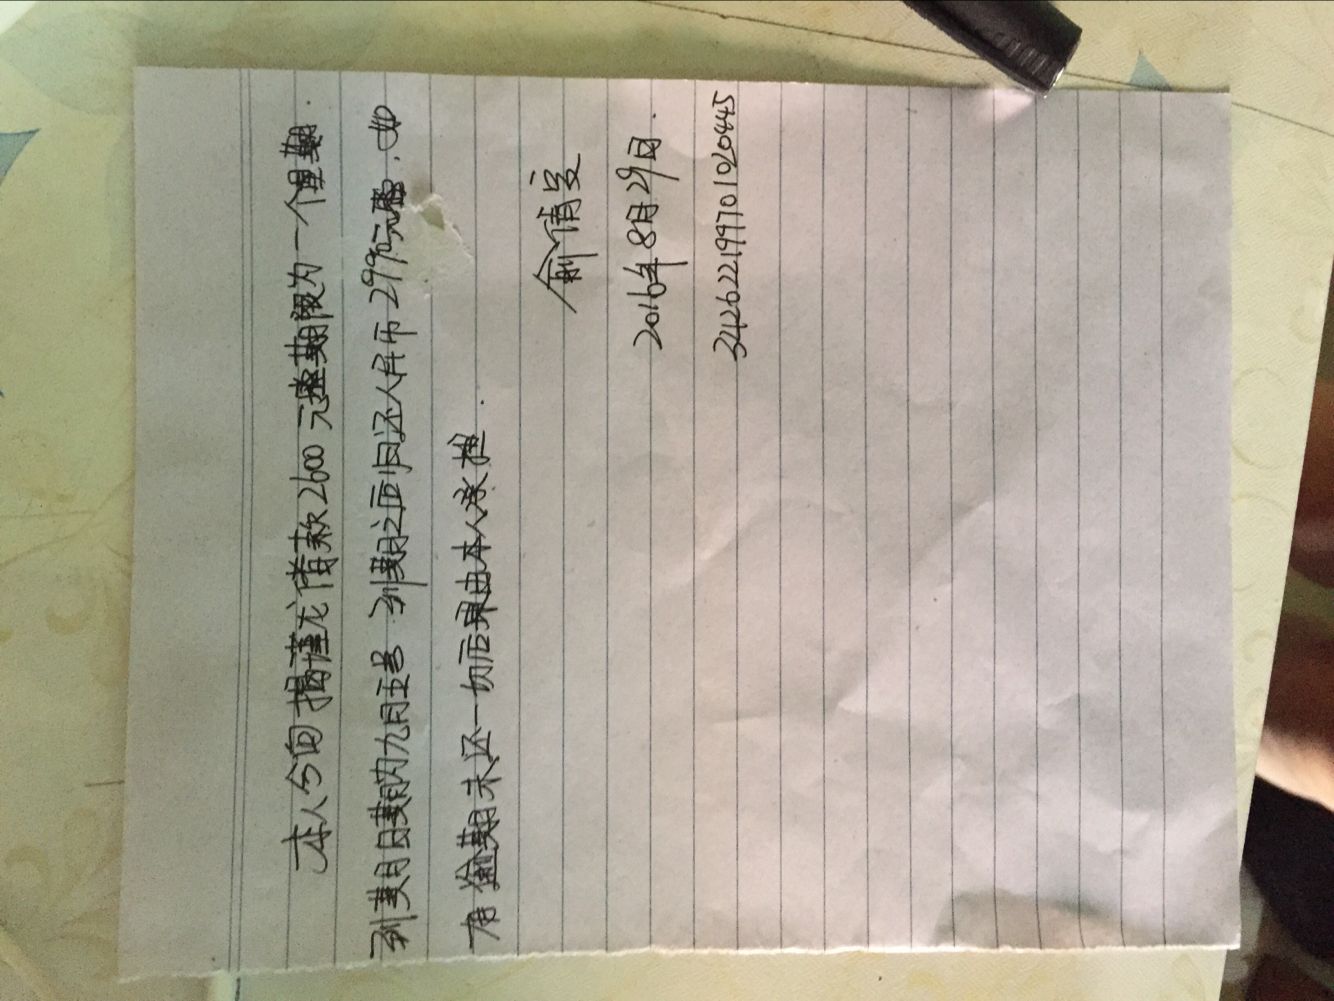 本人今向揭建龙借款2600元整期限为一个星期.
到期日期为九月五号 到期之后归还人民币2990元整.如
有偷期未还一切后果由本人承担.
俞倩
2016年8月29日.
342622199701020445